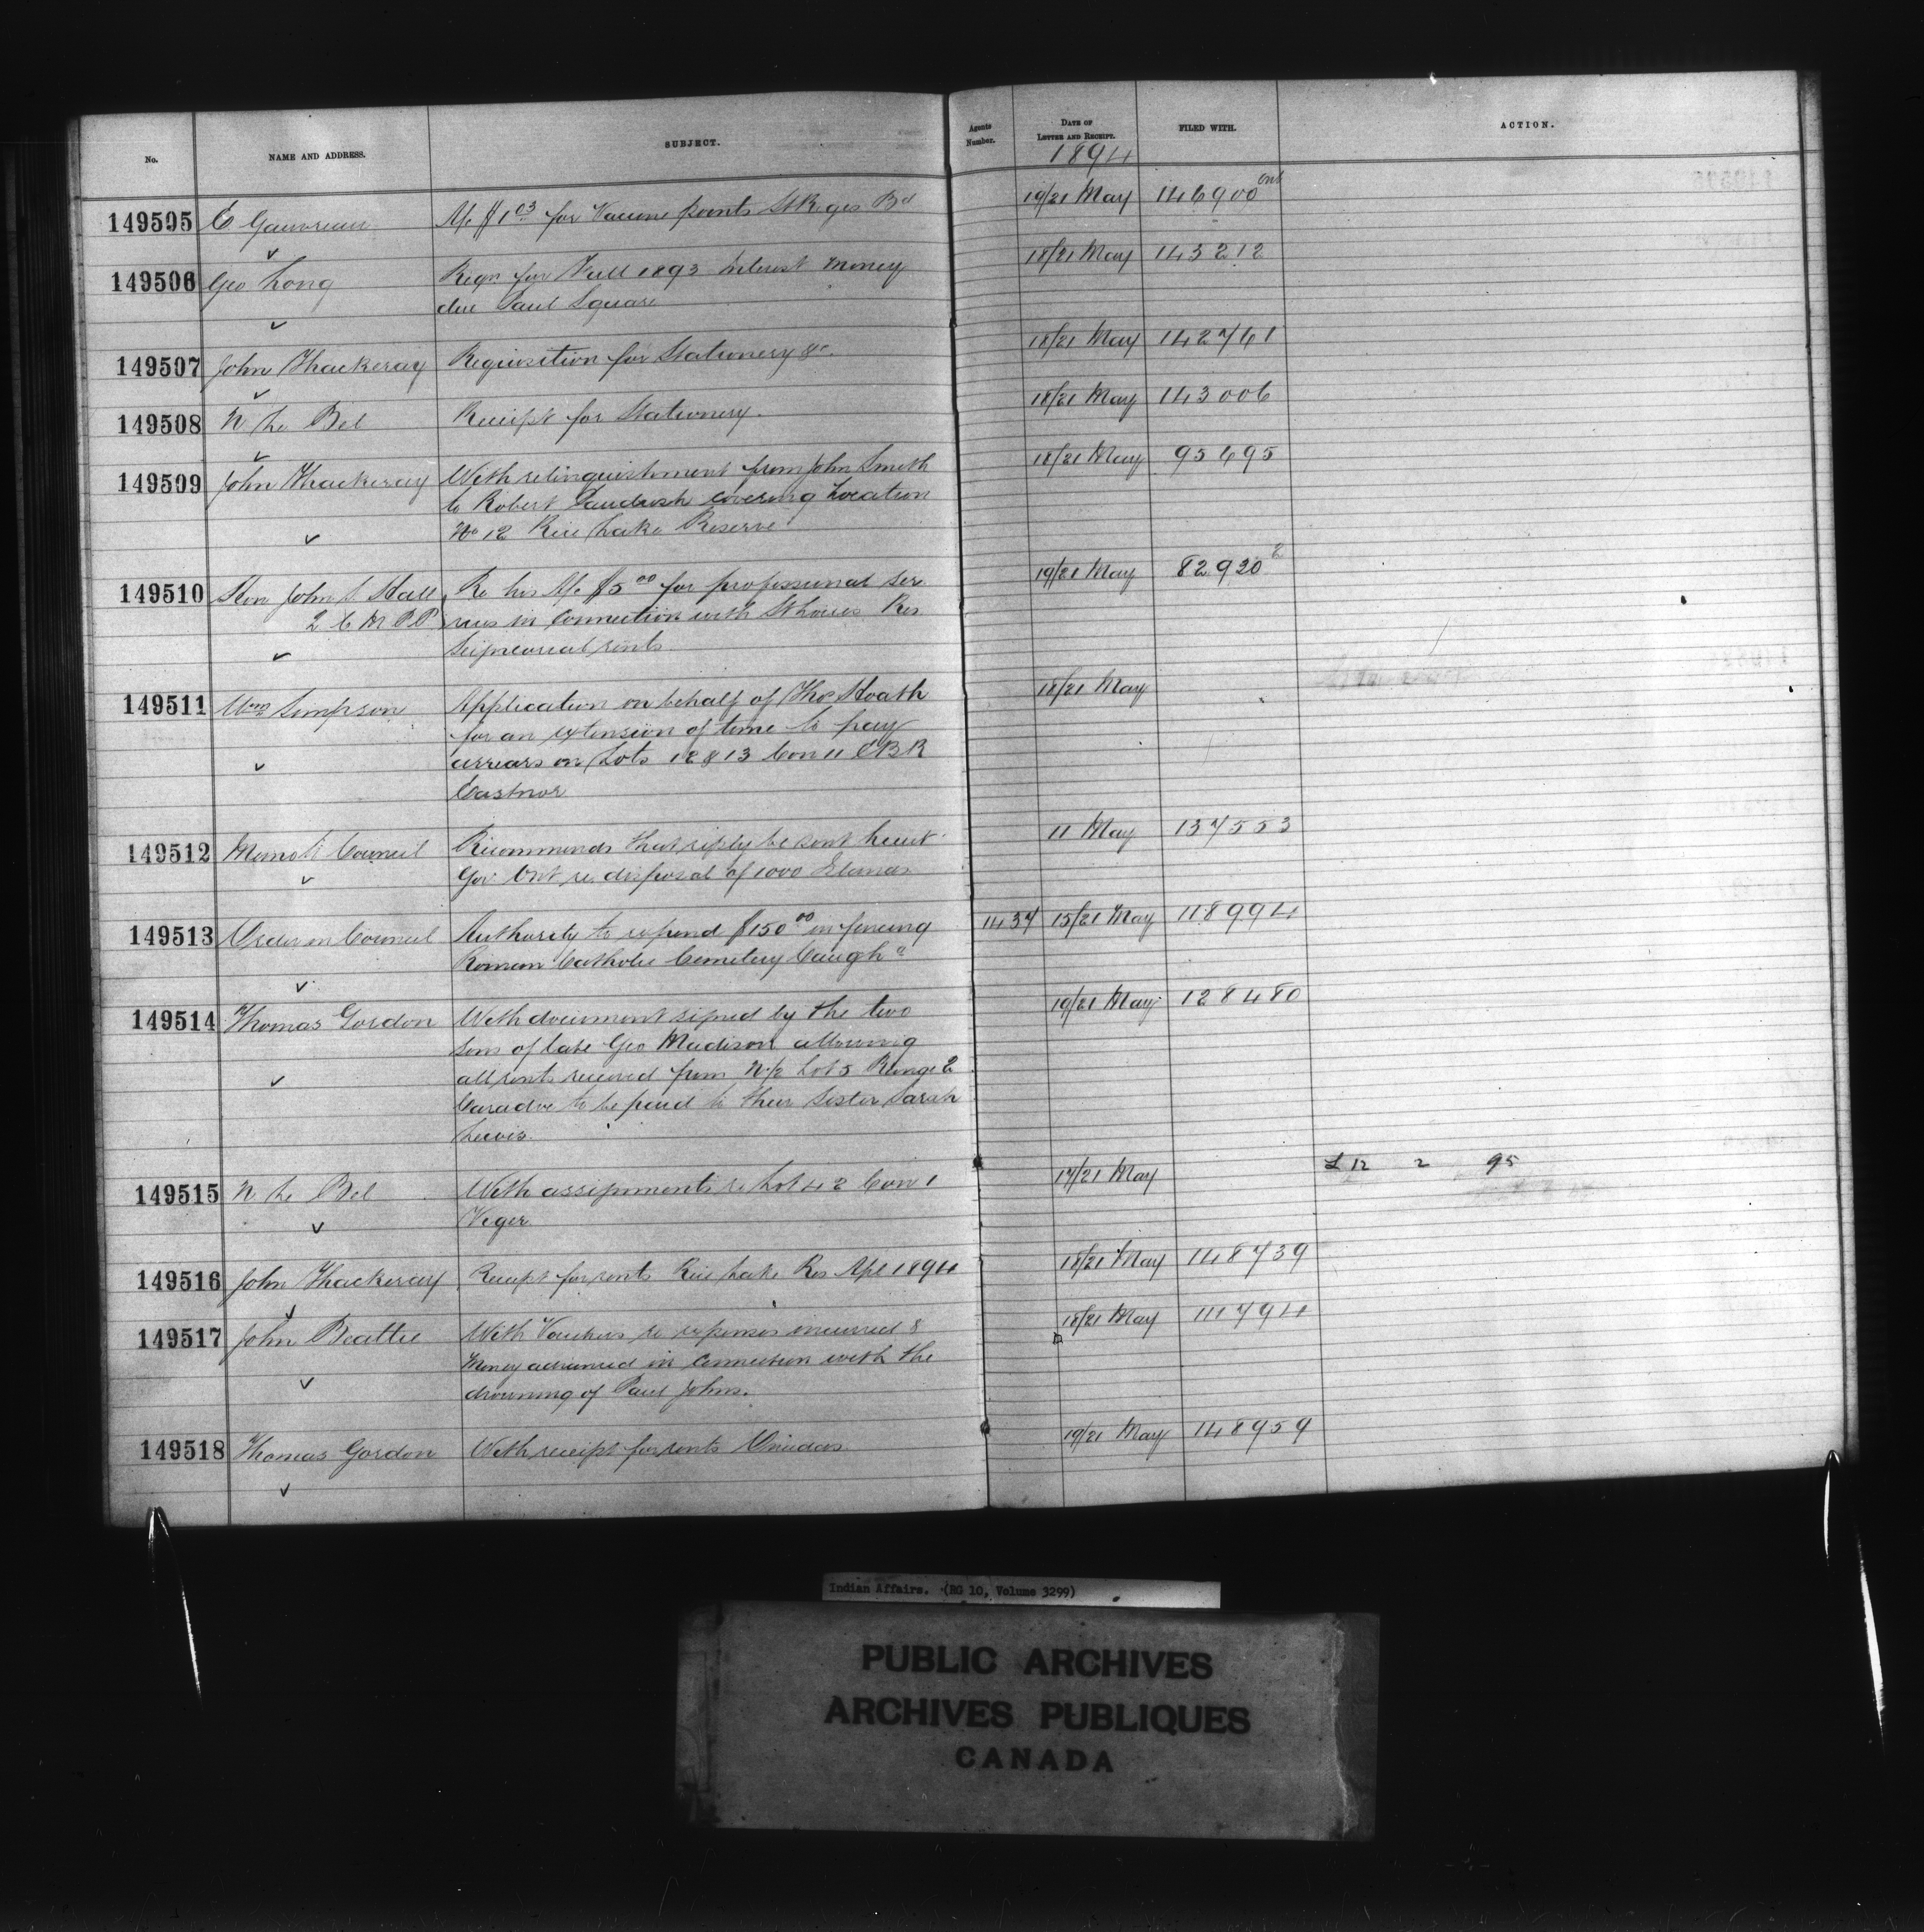 No. NAME AND ADDRESS. SUBJECT. Agents Number. DATE OF LETTER AND RECEIPT. FILED WITH. ACTION.
1894
149505 E Gauvreau A/c $1.03 for Vaccine points St Regis Bd 19/21 May 146900 Ont
149506 Geo Long Reqn for Fall 1893 Interest money 18/21 May 143212
due Paul Square
149507 John Thackeray Requisition for Stationery &c. 18/21 May 142761
149508 N Le Bel Receipt for Stationery. 18/21 May 143006
149509 John Thackeray With relinquishment from John Smith 18/21 May 95495
to Robert Paudash covering Location
No 12 Rice Lake Reserve
149510 Hon John S Hall Re his A/c $5 00 for professional Ser 19/21 May 82920 2
Q C M P P vices in Connection with St Louis Res
Seigneurial rents
149511 Wm Simpson Application on behalf of Thos Hoath 18/21 May
for an extension of time to pay
arrears on Lots 12 & 13 Con 11 E B R
Eastnor
149512 Memo to Council Recommends that reply be sent Lieut 11 May 137553
Gov Ont re disposal of 1000 Islands
149513 Order in Council Authority to expend $150 00 in fencing 1437 15/21 May 118994
Roman Catholic Cemetery Caugha
149514 Thomas Gordon With document signed by the two 19/21 May 128480
Sons of late Geo Madison allowing
all rents received from N ½ Lot 5 Range 2
Caradoc to be paid to their Sister Sarah
Lewis.
149515 N Le Bel With assignments re Lot 42 Con 1 17/21 May L 12 2 95
Viger
149516 John Thackeray Receipt for rents Rice Lake Res Apl 1894 18/21 May 148739
149517 John Beattie With Vouchers re expenses incurred & 18/21 May 111794
Money advanced in Connection with the
drowning of Paul Johns.
149518 Thomas Gordon With receipt for rents Oneidas 19/21 May 148959
Indian Affairs. (RG 10, Volume 3299)
PUBLIC ARCHIVES
ARCHIVES PUBLIQUES
CANADA